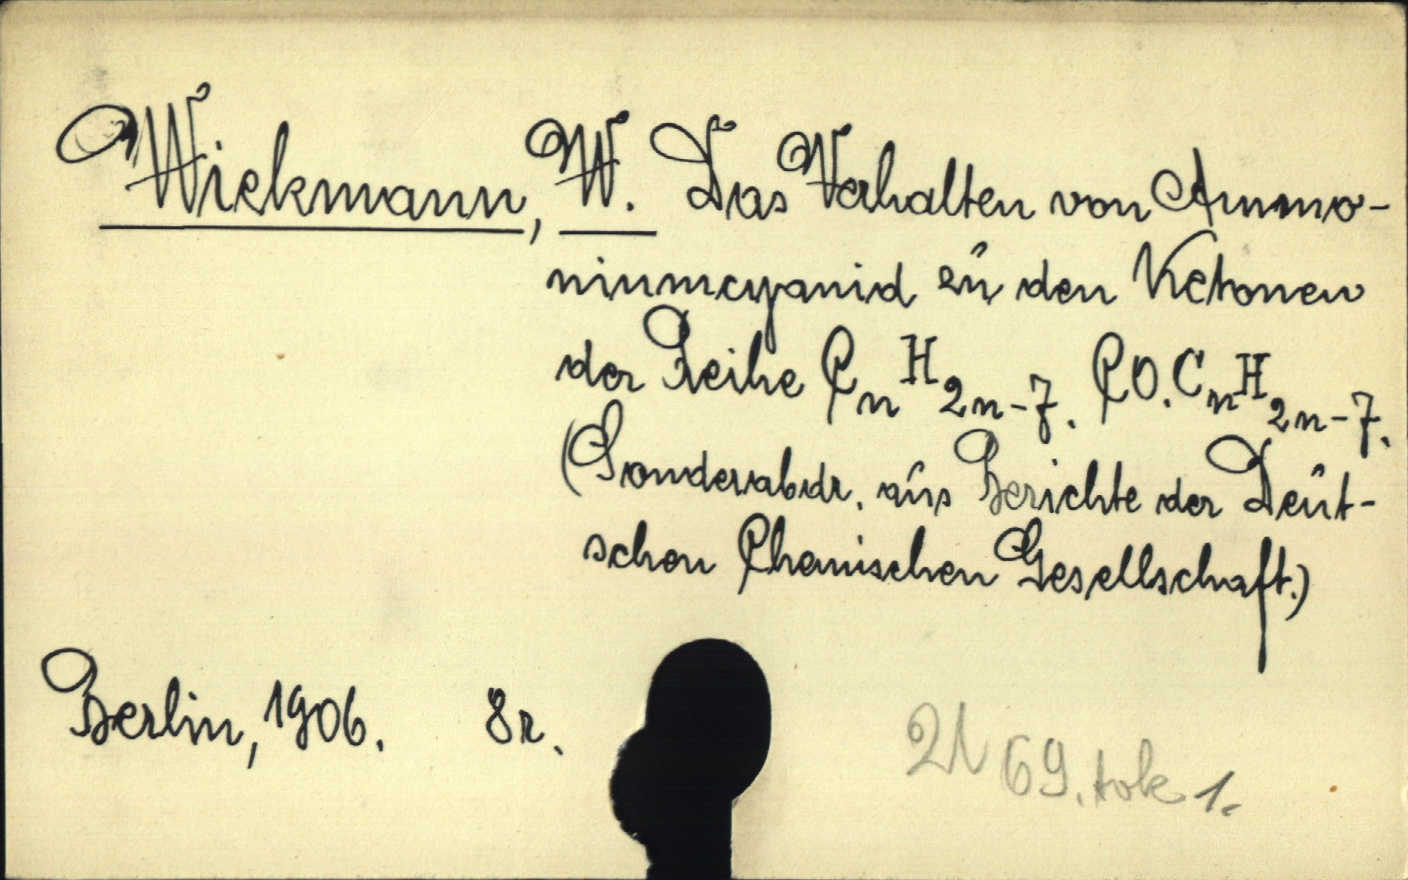 Wiekmann, W. Das Verhalten von Ammo-
niumcyanid zu den Ketonen
der Reihe CnH2n-7. CO.CnH2n-7.
(Sonderabdr. aus Berichte der Deut-
schen Chemischen Gesellschaft.)
Berlin, 1906. 8r.
69. tok 1.